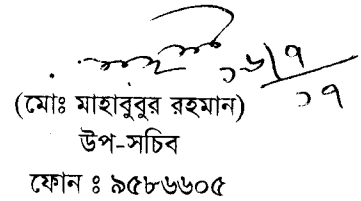 ১৬/৭
১৭
(মোঃ মাহাবুবুর রহমান)
উপ-সচিব
ফোন ঃ ৯৫৮৬৬০৫